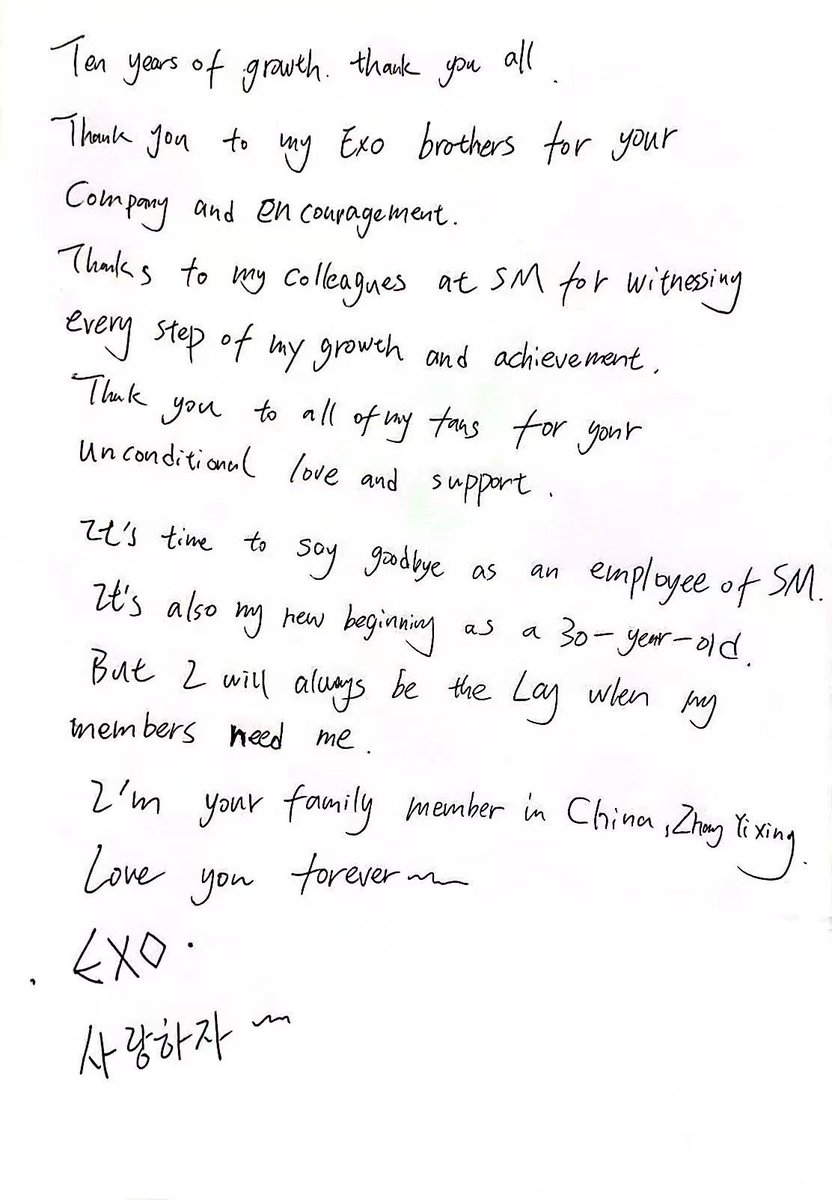 Ten years of growth. thank you all.
Thank you to my Exo brothers for your
Company and encouragement.
Thanks to my colleagues at SM for witnessing
every step of my growth and achievement.
Thank you to all of my fans for your
unconditional love and support.
It's time to say goodbye as an employee of SM.
It's also my new beginning as a 30-year-old.
But I will always be the Lay when my
members need me.
I'm your family member in China, Zhang Yixing.
Love you forever~
EXO.
사랑하자~